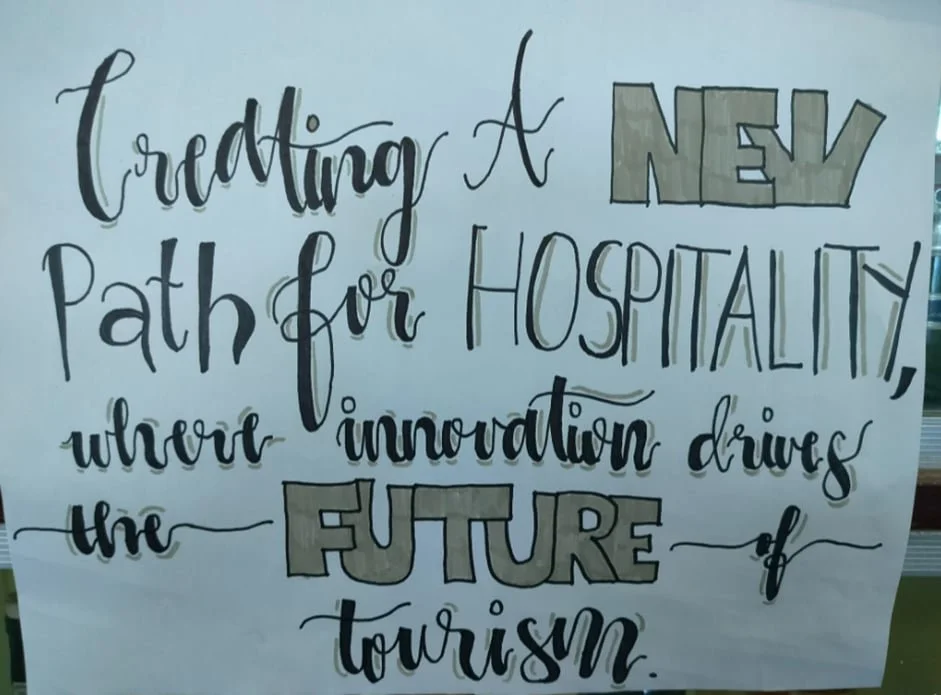 Creating A NEW
Path for HOSPITALITY,
where innovation drives
the FUTURE of
tourism.